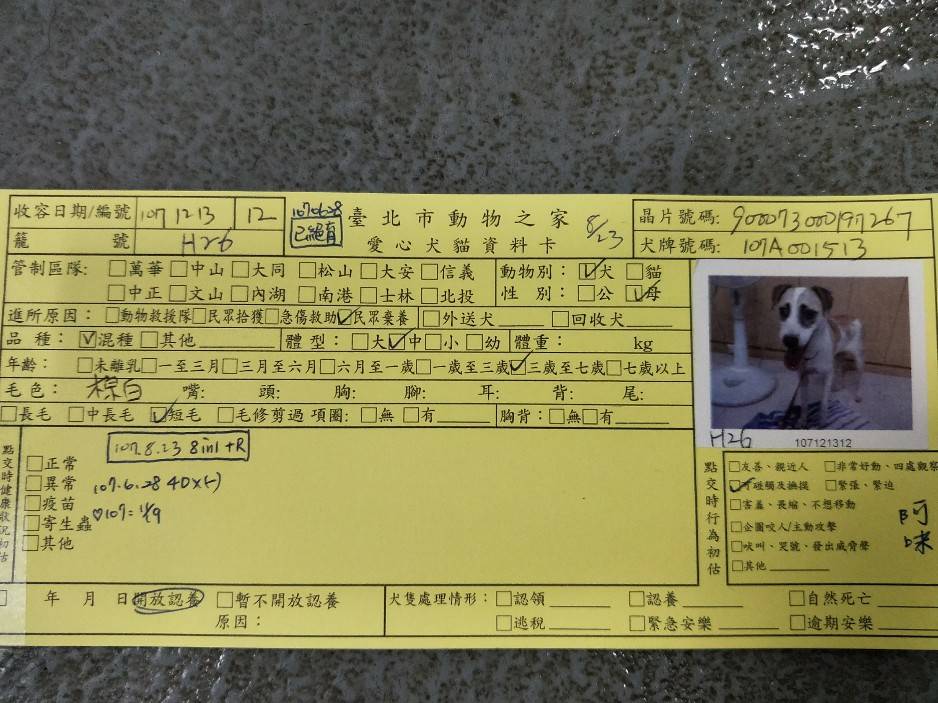 收容日期/編號 107 12 13 12 107.6.28 已絕育 臺北市動物之家 8/23 晶片號碼: 900073000197267
籠 號 H26 愛心犬貓資料卡 犬牌號碼: 107A001513
管制區隊: □萬華□中山□大同 □松山□大安□信義 動物別: ☑犬 □貓
□中正□文山□內湖 □南港□士林□北投 性 別: □公 ☑母
進所原因: □動物救援隊□民眾拾獲□急傷救助☑民眾棄養 □外送犬 □回收犬
品 種: ☑混種□其他 體 型: □大☑中□小□幼 體重: kg
年齡: □未離乳□一至三月□三月至六月□六月至一歲□一歲至三歲☑三歲至七歲□七歲以上
毛色: 棕白 嘴: 頭: 胸: 腳: 耳: 背: 尾:
□長毛 □中長毛 ☑短毛 □毛修剪過 項圈: □無 □有 胸背: □無□有
H26 107121312
點交時健康狀況初估
107.8.23 8in1+R
□正常
□異常 107.6.28 4DX(-)
□疫苗
□寄生蟲 ♡107=1/9
□其他
點交時行為初估
□友善、親近人 □非常好動、四處觀察
☑可碰觸及撫摸 □緊張、緊迫
□害羞、畏縮、不想移動
□企圖咬人/主動攻擊
□吠叫、哭號、發出威脅聲
□其他
阿咪
□ 年 月 日開放認養 □暫不開放認養 犬隻處理情形: □認領 □認養 □自然死亡
原因: □逃脫 □緊急安樂 □逾期安樂